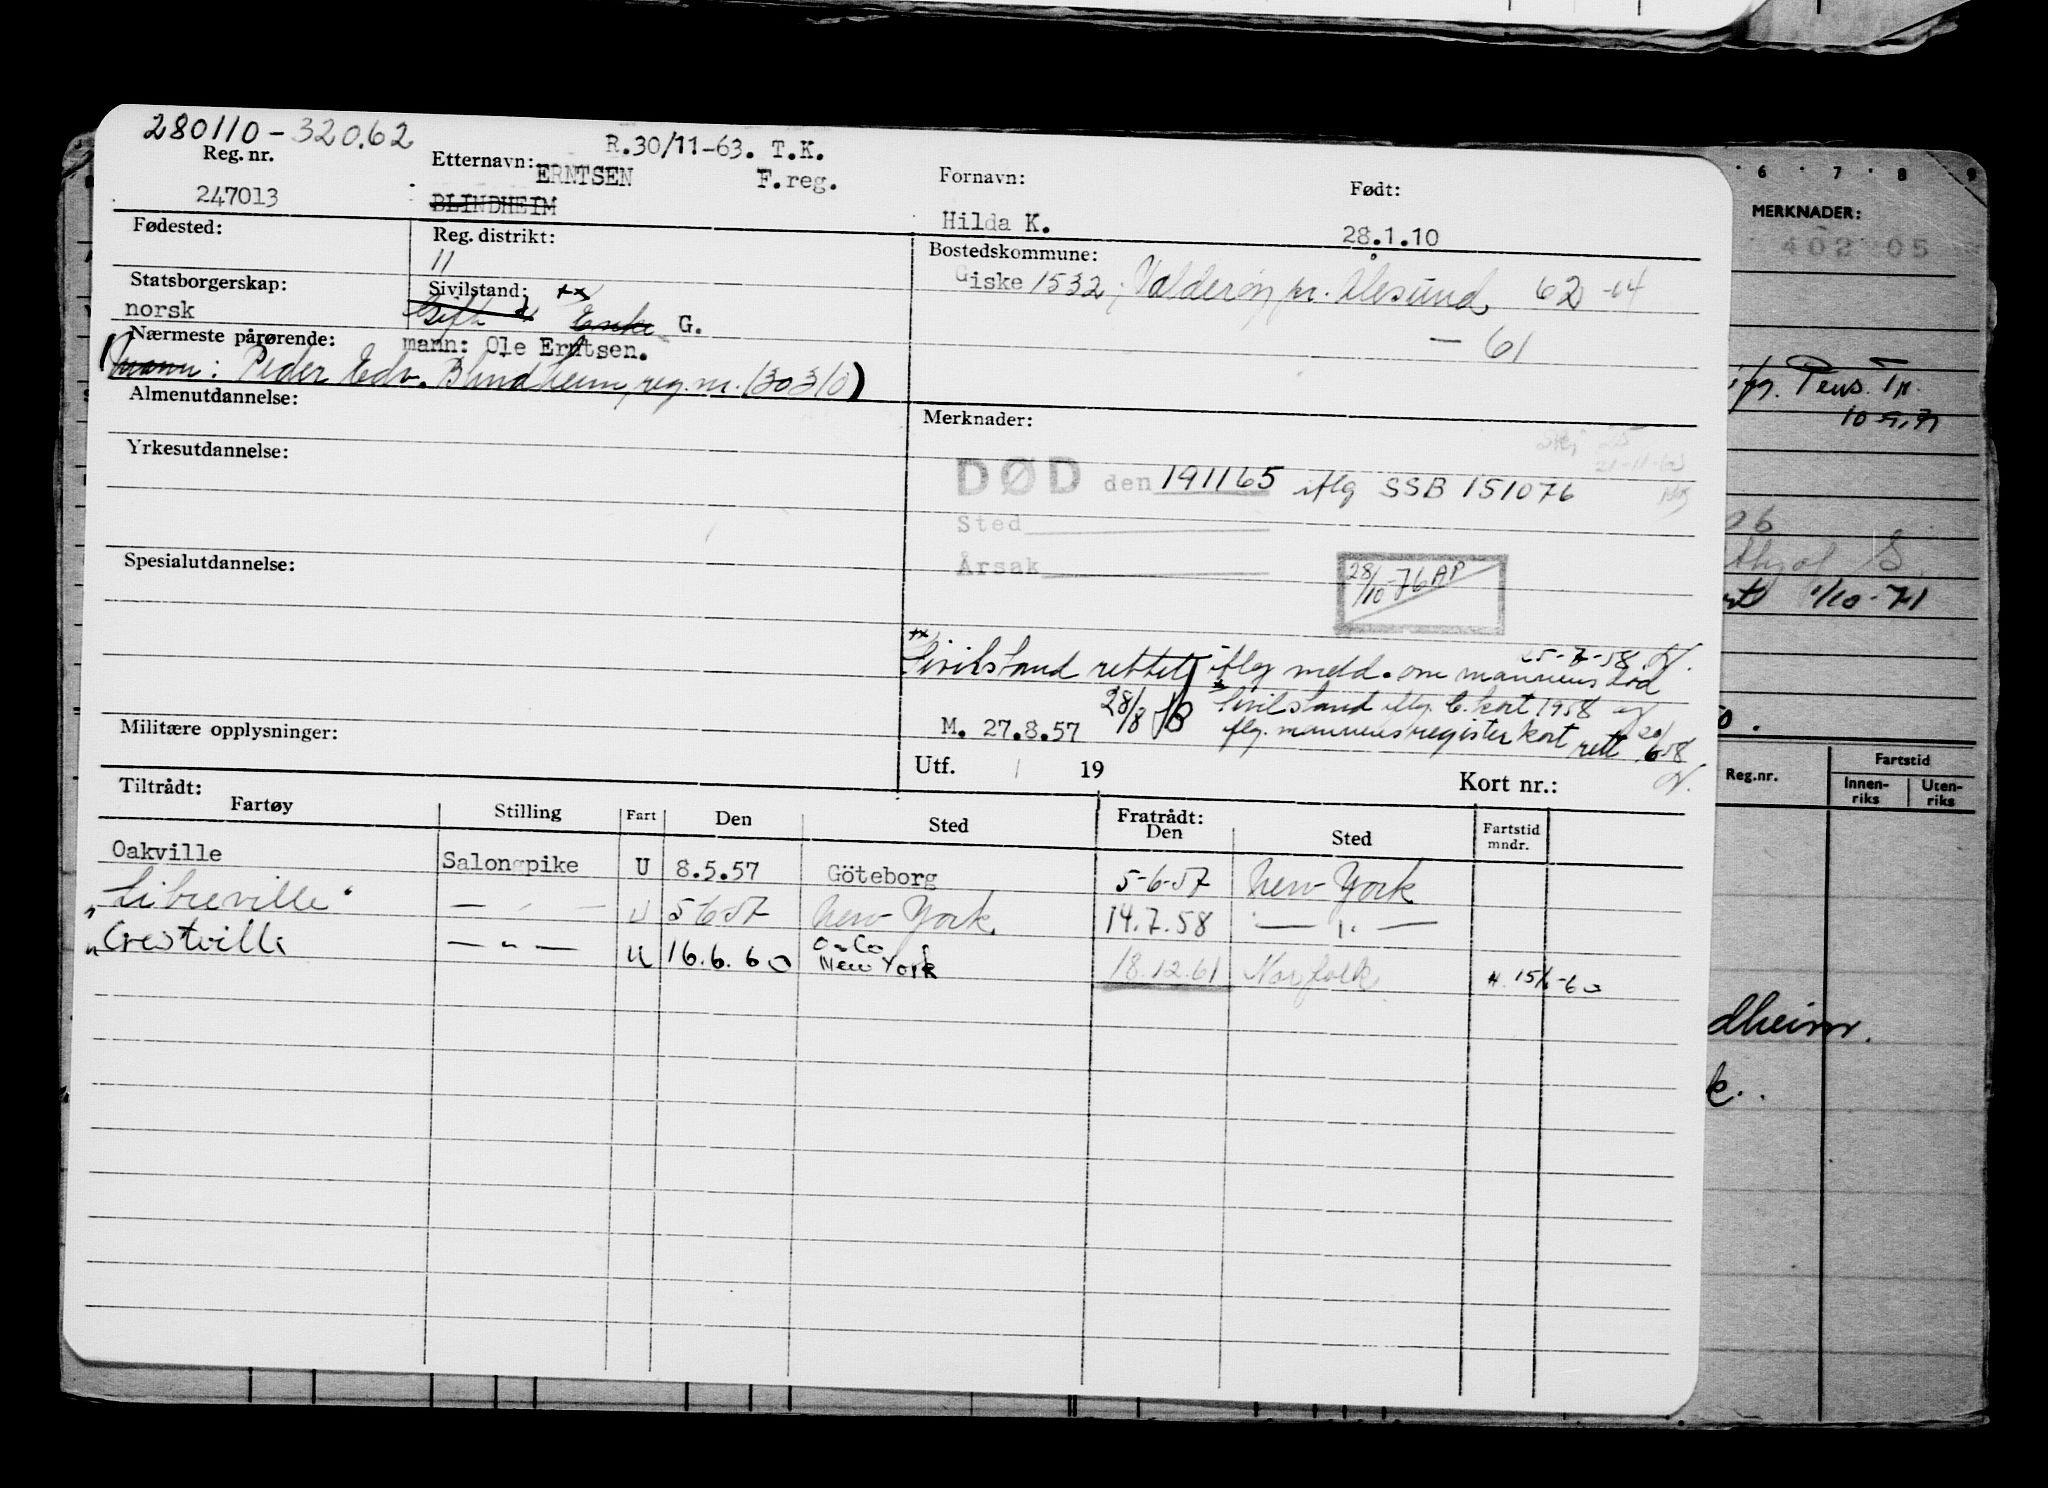 280110-32062
R.30/11-63. T.K.
Reg. nr.
Etternavn: ERNTSEN F.reg.
Fornavn:
Født:
247013
BLINDHEIM
Hilda K.
28.1.10
Fødested:
Reg. distrikt:
11
Bostedskommune:
Giske 1532, Valderøy pr. Ålesund, 62 -64
- 61
Statsborgerskap:
norsk
Sivilstand: xx
Gift x Enke G.
Nærmeste pårørende: mann: Ole Erntsen.
(mann: Peder Edv. Blindheim, reg. nr. 130310)
Almenutdannelse:
Merknader:
Yrkesutdannelse:
DØD den 191165 iflg SSB 151076
Sted
Årsak
28/10-76 AP
Spesialutdannelse:
xx Sivilstand rettet iflg meld. om mannens død 25-7-58
x Sivilstand iflg. C. kort 1958 og
M. 27.8.57 28/8
flg. mannens registerkort rett. 20/6 58
Militære opplysninger:
Utf. / 19
Kort nr.:
Tiltrådt:
Fratrådt:
Fartøy Stilling Fart Den Sted Den Sted Fartstid mndr.
Oakville Salongpike U 8.5.57 Göteborg 5-6-57 New York
"Libreville" — " — U 5657 New York 14.7.58 — " —
"Crestville — " — U 16.6.60 New York 18.12.61 Norfolk H. 15/6-60
6 7 8 9
MERKNADER:
402 05
Pens. Tr.
1/10-71
Reg.nr.
Fartstid
Innen-riks
Uten-riks
dheim.
k..